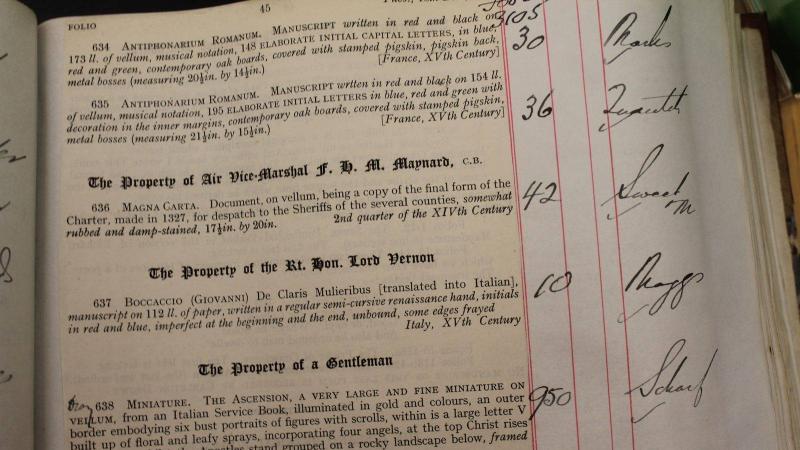 45
FOLIO
634 ANTIPHONARIUM ROMANUM. MANUSCRIPT written in red and black on
173 ll. of vellum, musical notation, 148 ELABORATE INITIAL CAPITAL LETTERS, in blue,
red and green, contemporary oak boards, covered with stamped pigskin, pigskin back,
metal bosses (measuring 20½in. by 14½in.) [France, XVth Century]
30
635 ANTIPHONARIUM ROMANUM. MANUSCRIPT written in red and black on 154 ll.
of vellum, musical notation, 195 ELABORATE INITIAL LETTERS in blue, red and green with
decoration in the inner margins, contemporary oak boards, covered with stamped pigskin,
metal bosses (measuring 21½in. by 15½in.) [France, XVth Century]
36
The Property of Air Vice-Marshal F. H. M. Maynard, C.B.
636 MAGNA CARTA. Document, on vellum, being a copy of the final form of the
Charter, made in 1327, for despatch to the Sheriffs of the several counties, somewhat
rubbed and damp-stained, 17½in. by 20in. 2nd quarter of the XIVth Century
42 Sweet
M
The Property of the Rt. Hon. Lord Vernon
637 BOCCACCIO (GIOVANNI) De Claris Mulieribus [translated into Italian],
manuscript on 112 ll. of paper, written in a regular semi-cursive renaissance hand, initials
in red and blue, imperfect at the beginning and the end, unbound, some edges frayed
Italy, XVth Century
10 Maggs
The Property of a Gentleman
638 MINIATURE. THE ASCENSION, A VERY LARGE AND FINE MINIATURE ON
VELLUM, from an Italian Service Book, illuminated in gold and colours, an outer
border embodying six bust portraits of figures with scrolls, within is a large letter V
built up of floral and leafy sprays, incorporating four angels, at the top Christ rises
stand grouped on a rocky landscape below, framed
950 Scharf